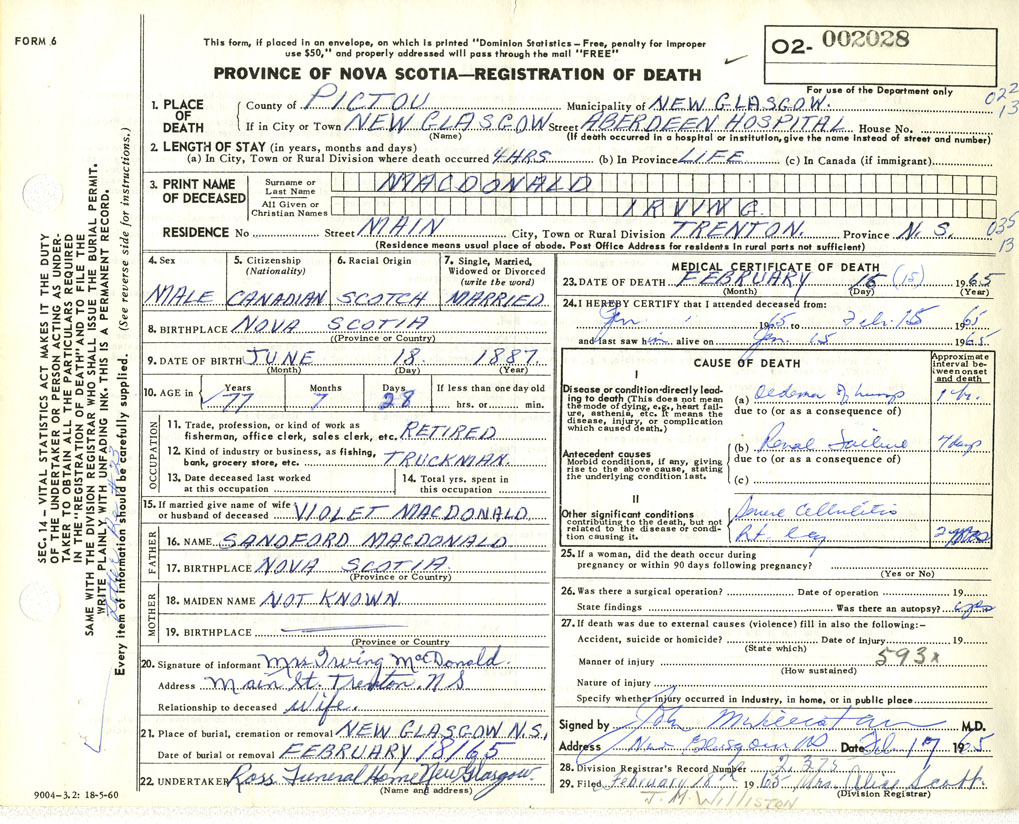 FORM 6
This form, if placed in an envelope, on which is printed "Dominion Statistics – Free, penalty for improper
use $50," and properly addressed will pass through the mail "FREE"
O2- 002028
PROVINCE OF NOVA SCOTIA—REGISTRATION OF DEATH
For use of the Department only
1. PLACE OF DEATH
County of PICTOU Municipality of NEW GLASGOW. 022
If in City or Town NEW GLASGOW Street ABERDEEN HOSPITAL House No. 13
(Name) (If death occurred in a hospital or institution, give the name instead of street and number)
2. LENGTH OF STAY (in years, months and days)
(a) In City, Town or Rural Division where death occurred 4 HRS (b) In Province LIFE (c) In Canada (if immigrant)
3. PRINT NAME OF DECEASED
Surname or Last Name MACDONALD
All Given or Christian Names IRVING
RESIDENCE No Street MAIN City, Town or Rural Division TRENTON. Province N.S. 035
(Residence means usual place of abode. Post Office Address for residents in rural parts not sufficient) 13
4. Sex 5. Citizenship (Nationality) 6. Racial Origin 7. Single, Married, Widowed or Divorced (write the word)
MALE CANADIAN SCOTCH MARRIED
8. BIRTHPLACE NOVA SCOTIA
(Province or Country)
9. DATE OF BIRTH JUNE 18. 1887.
(Month) (Day) (Year)
10. AGE in Years Months Days If less than one day old
77 7 28 hrs. or min.
OCCUPATION
11. Trade, profession, or kind of work as
fisherman, office clerk, sales clerk, etc. RETIRED
12. Kind of industry or business, as fishing,
bank, grocery store, etc. TRUCKMAN.
13. Date deceased last worked
at this occupation
14. Total yrs. spent in
this occupation
15. If married give name of wife
or husband of deceased VIOLET MACDONALD
FATHER
16. NAME SANDFORD MACDONALD
17. BIRTHPLACE NOVA SCOTIA.
(Province or Country)
MOTHER
18. MAIDEN NAME NOT KNOWN
19. BIRTHPLACE
(Province or Country
20. Signature of informant Mrs Irving MacDonald.
Address Main St. Trenton, N S
Relationship to deceased wife.
21. Place of burial, cremation or removal NEW GLASGOW N.S.
Date of burial or removal FEBRUARY 18/65
22. UNDERTAKER Ross Funeral Home New Glasgow.
(Name and address)
MEDICAL CERTIFICATE OF DEATH
23. DATE OF DEATH FEBRUARY 15 (15) 1965
(Month) (Day) (Year)
24. I HEREBY CERTIFY that I attended deceased from:
Jan. 1965 to Feb. 15 1965
and last saw him alive on Jan. 15 1965.
CAUSE OF DEATH
Approximate interval between onset and death
I
Disease or condition directly leading to death (This does not mean
the mode of dying, e.g., heart failure, asthenia, etc. It means the
disease, injury, or complication
which caused death.)
(a) Oedema of lungs
due to (or as a consequence of)
Antecedent causes
Morbid conditions, if any, giving
rise to the above cause, stating
the underlying condition last.
(b) Renal Failure 7 days
due to (or as a consequence of)
(c)
II
Other significant conditions
contributing to the death, but not
related to the disease or condition causing it.
Severe Cellulitis
Rt. leg
25. If a woman, did the death occur during
pregnancy or within 90 days following pregnancy?
(Yes or No)
26. Was there a surgical operation? Date of operation 19
State findings Was there an autopsy? yes
27. If death was due to external causes (violence) fill in also the following:–
Accident, suicide or homicide? Date of injury 19
(State which)
593x
Manner of injury
(How sustained)
Nature of injury
Specify whether injury occurred in industry, in home, or in public place
Signed by M.D.
Address New Glasgow NS Date Feb 17 1965
28. Division Registrar's Record Number 2375
29. Filed February 18th 1965 Mrs. Alice Scott
(Division Registrar)
J. M. WILLISTON
9004-3.2: 18-5-60
SEC. 14 – VITAL STATISTICS ACT MAKES IT THE DUTY
OF THE UNDERTAKER OR PERSON ACTING AS UNDER-
TAKER TO OBTAIN ALL THE PARTICULARS REQUIRED
IN THE "REGISTRATION OF DEATH" AND TO FILE THE
SAME WITH THE DIVISION REGISTRAR WHO SHALL ISSUE THE BURIAL PERMIT.
WRITE PLAINLY, WITH UNFADING INK. THIS IS A PERMANENT RECORD.
Every item of information should be carefully supplied. (See reverse side for instructions.)